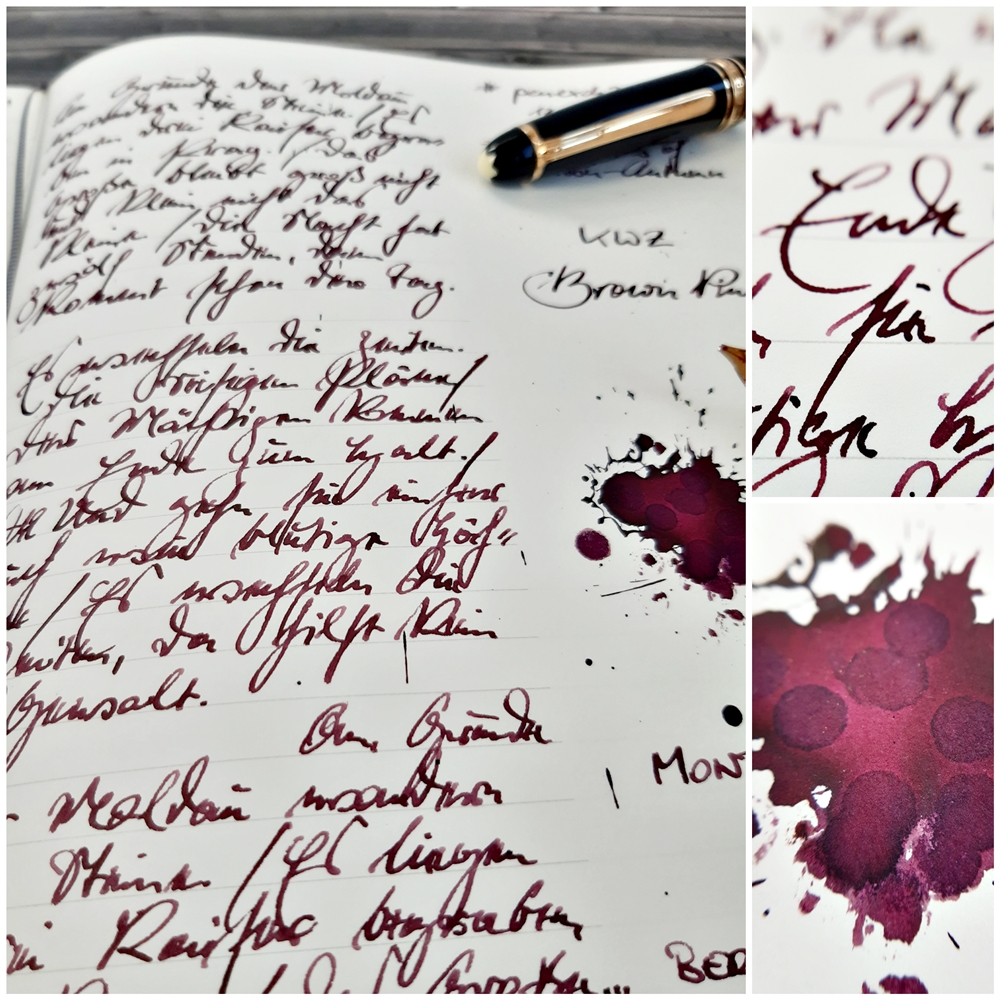 Am Grunde der Moldau
wandern die Steine / Es
liegen drei Kaiser begra
ben in Prag. / Das
Große bleibt groß nicht
und klein nicht das
Kleine / Die Nacht hat
zwölf Stunden, dann
kommt schon der Tag.
Es wechseln die Zeiten.
Die riesigen Pläne /
der Mächtigen kommen
am Ende zum Halt. /
Und gehn sie einher
auch wie blutige Häh=
/ Es wechseln die
Zeiten, da hilft kein
Gewalt.
Am Grunde
Moldau wandern
Steine / Es liegen
Kaiser begraben
KWZ
Brown
MON
BER
Ende